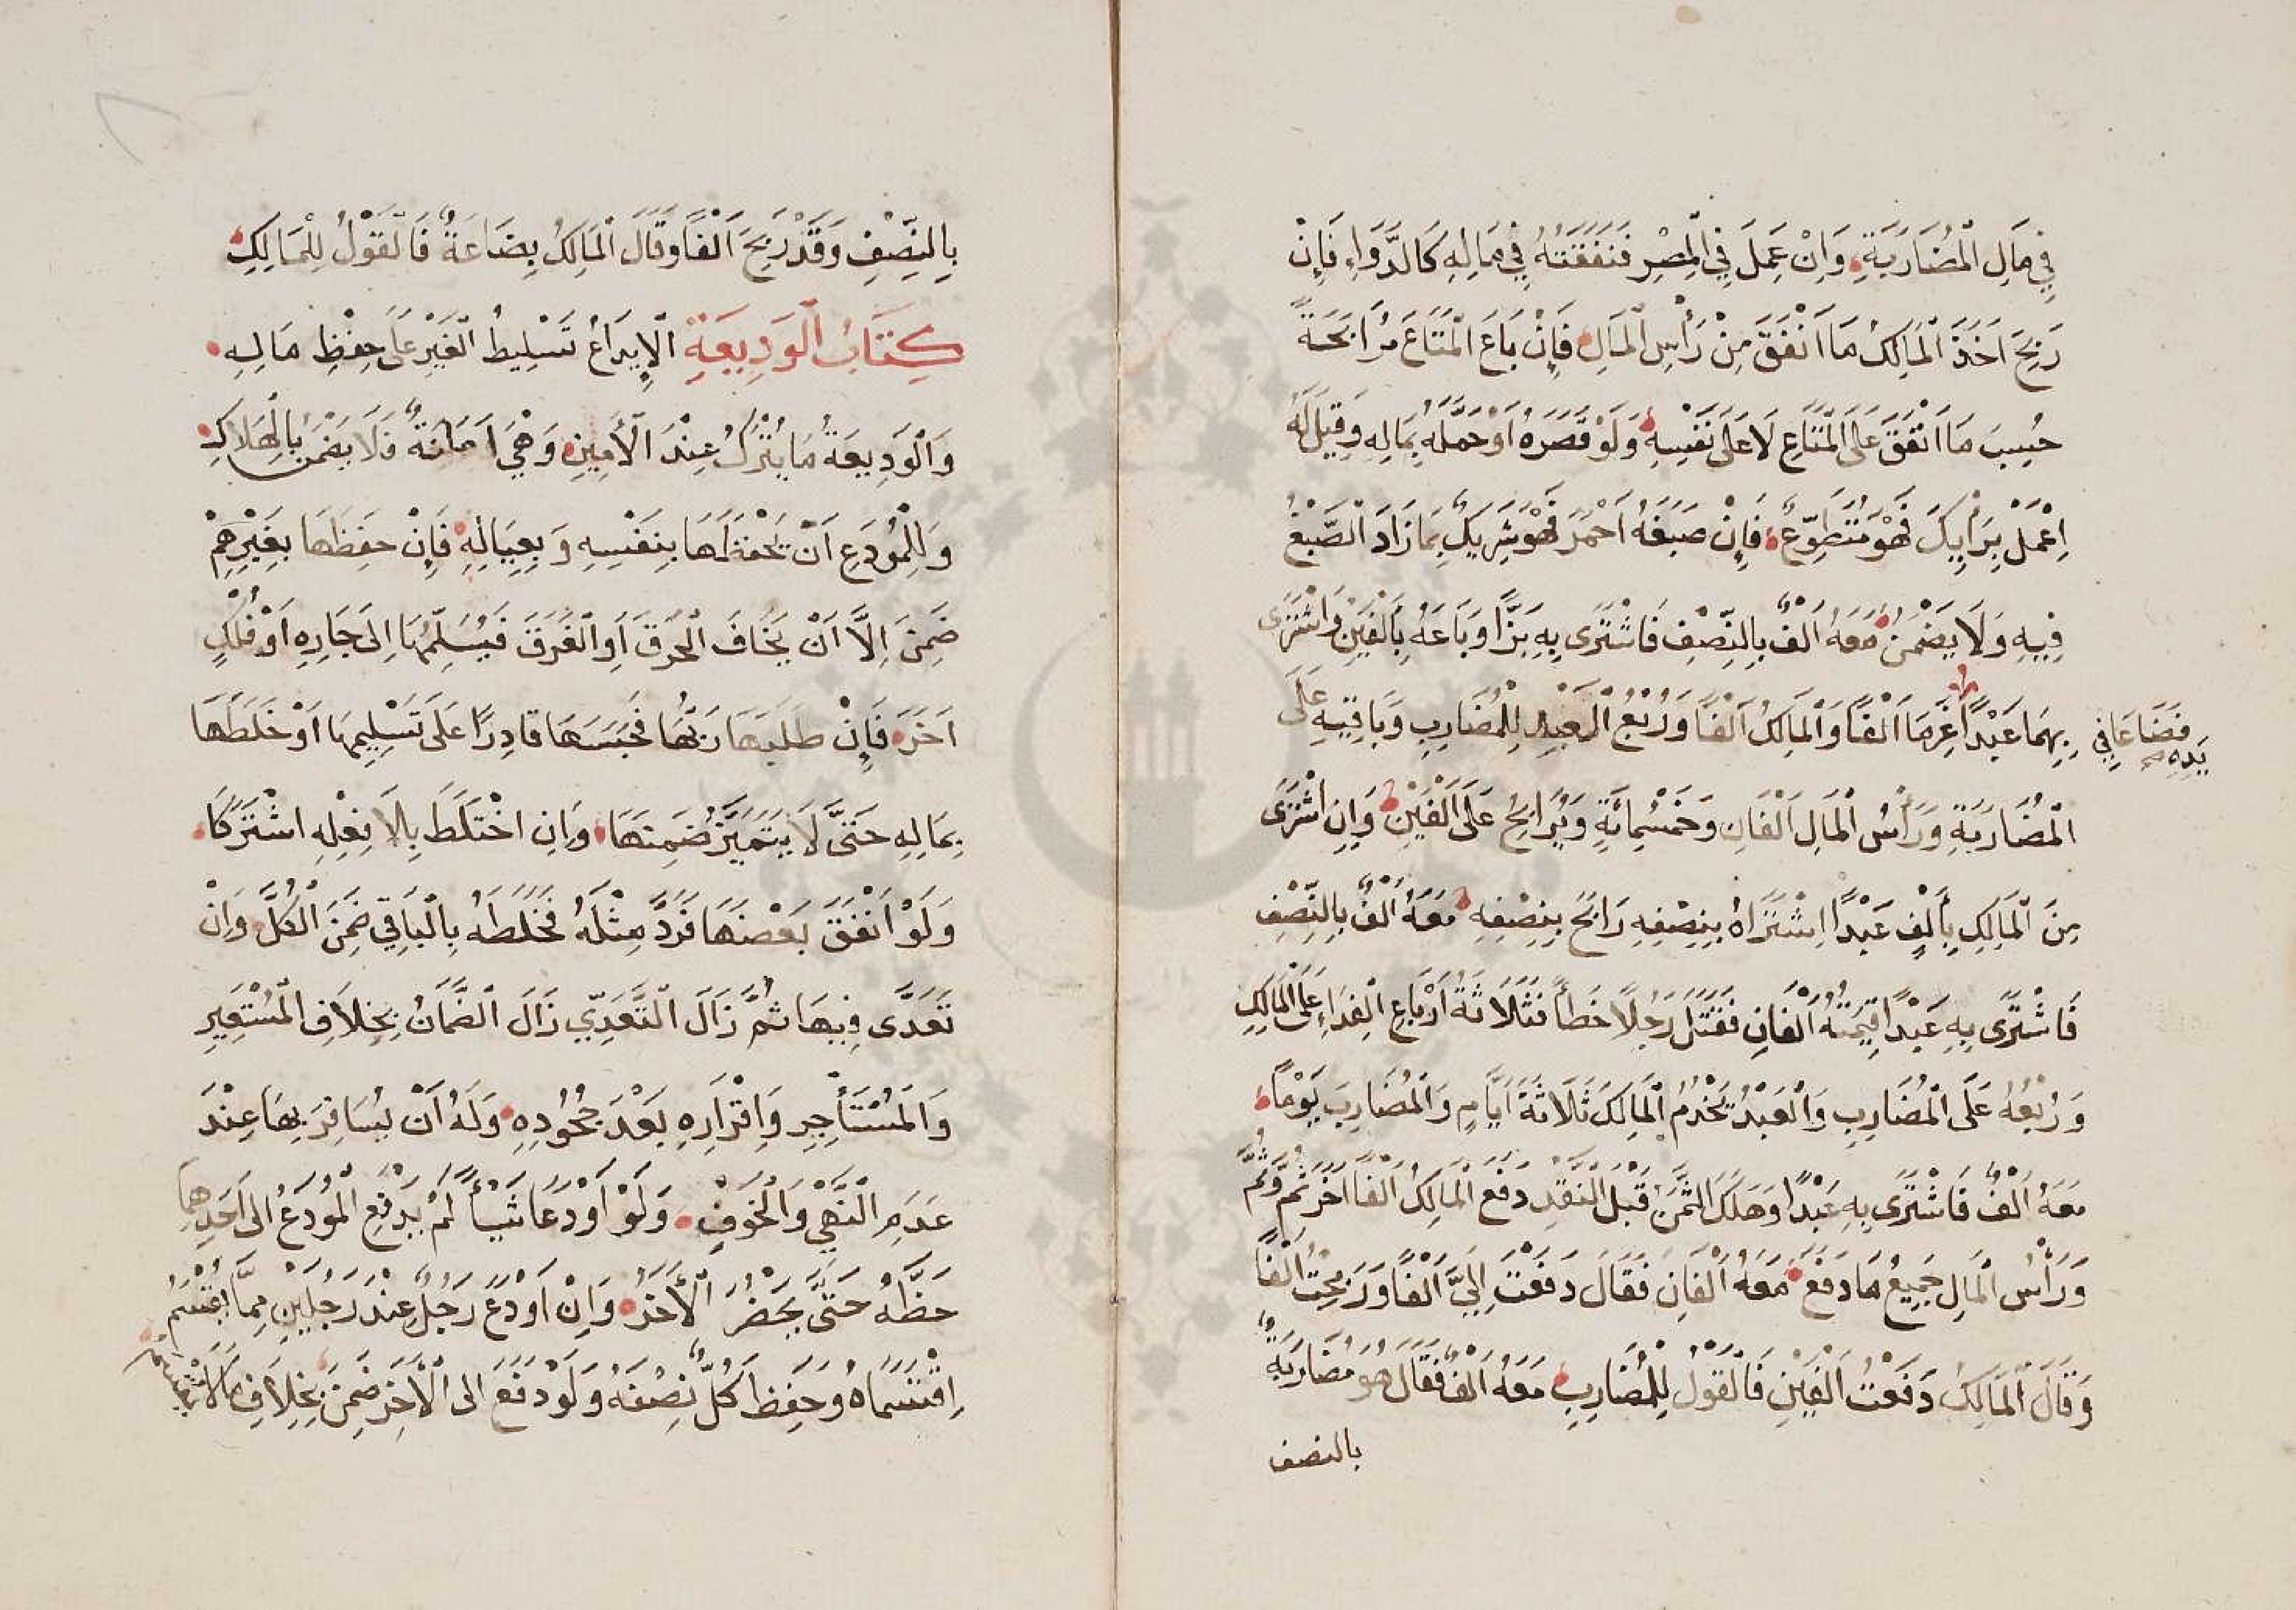 فِي مَالِ الْمُضَارَبَةِ وَاِنْ عَمِلَ فِي الْمِصْرِ فَنَفَقَتُهُ فِي مَالِهِ كَالدَّوَاءِ فَاِنْ
رَبِحَ اَخَذَ الْمَالِكُ مَا اَنْفَقَ مِنْ رَأْسِ الْمَالِ فَاِنْ بَاعَ الْمَتَاعَ مُرَابَحَةً
حُسِبَ مَا اَنْفَقَ عَلَى الْمَتَاعِ لَا عَلَى نَفْسِهِ وَلَوْ قَصَرَهُ اَوْ حَمَلَهُ بِمَالِهِ وَقِيلَ لَهُ
اِعْمَلْ بِرَأْيِكَ فَهُوَ مُتَطَوِّعٌ فَاِنْ صَبَغَهُ اَحْمَرَ فَهُوَ شَرِيكٌ بِمَا زَادَ الصَّبْغُ
فِيهِ وَلَا يَضْمَنُ مَعَهُ اَلْفٌ بِالنِّصْفِ فَاشْتَرَى بِهِ بَزًّا وَبَاعَهُ بِاَلْفَيْنِ وَاشْتَرَى
بِهِمَا عَبْدًا غَرِمَا اَلْفًا وَالْمَالِكُ اَلْفًا وَرُبْعُ الْعَبْدِ لِلْمُضَارِبِ وَبَاقِيهِ عَلَى
فَضَاعَا فِي
يَدِهِ صح
الْمُضَارَبَةِ وَرَأْسُ الْمَالِ اَلْفَانِ وَخَمْسُمِائَةٍ وَيُرَابِحُ عَلَى اَلْفَيْنِ وَاِنِ اشْتَرَى
مِنَ الْمَالِكِ بِاَلْفٍ عَبْدًا اِشْتَرَاهُ بِنِصْفِهِ رَابَحَ بِنِصْفِهِ مَعَهُ اَلْفٌ بِالنِّصْفِ
فَاشْتَرَى بِهِ عَبْدًا قِيمَتُهُ اَلْفَانِ فَقَتَلَ رَجُلًا خَطَأً فَثَلَاثَةُ اَرْبَاعِ الْفِدَاءِ عَلَى الْمَالِكِ
وَرُبْعُهُ عَلَى الْمُضَارِبِ وَالْعَبْدُ يَخْدُمُ الْمَالِكَ ثَلَاثَةَ اَيَّامٍ وَالْمُضَارِبَ يَوْمًا
مَعَهُ اَلْفٌ فَاشْتَرَى بِهِ عَبْدًا وَهَلَكَ الثَّمَنُ قَبْلَ النَّقْدِ دَفَعَ الْمَالِكُ اَلْفًا اخَرَ ثُمَّ وَثُمَّ
وَرَأْسُ الْمَالِ جَمِيعُ مَا دَفَعَ مَعَهُ اَلْفَانِ فَقَالَ دَفَعْتَ اِلَيَّ اَلْفًا وَرَبِحْتُ اَلْفًا
وَقَالَ الْمَالِكُ دَفَعْتُ اَلْفَيْنِ فَالْقَوْلُ لِلْمُضَارِبِ مَعَهُ اَلْفٌ فَقَالَ هُوَ مُضَارَبَةٌ
بالنصف
بِالنِّصْفِ وَقَدْ رَبِحَ اَلْفًا وَقَالَ الْمَالِكُ بِضَاعَةٌ فَالْقَوْلُ لِلْمَالِكِ
كِتَابُ الْوَدِيعَةِ الْاِيدَاعُ تَسْلِيطُ الْغَيْرِ عَلَى حِفْظِ مَالِهِ
وَالْوَدِيعَةُ مَا يُتْرَكُ عِنْدَ الْاَمِينِ وَهِيَ اَمَانَةٌ فَلَا يَضْمَنُ بِالْهَلَاكِ
وَلِلْمُودَعِ اَنْ يَحْفَظَهَا بِنَفْسِهِ وَبِعِيَالِهِ فَاِنْ حَفِظَهَا بِغَيْرِهِمْ
ضَمِنَ اِلَّا اَنْ يَخَافَ الْحَرَقَ اَوِ الْغَرَقَ فَيُسَلِّمُهَا اِلَى جَارِهِ اَوْ فُلْكٍ
اَخَرَ فَاِنْ طَلَبَهَا رَبُّهَا فَحَبَسَهَا قَادِرًا عَلَى تَسْلِيمِهَا اَوْ خَلَطَهَا
بِمَالِهِ حَتَّى لَا يَتَمَيَّزُ ضَمِنَهَا وَاِنِ اخْتَلَطَ بِلَا فِعْلِهِ اشْتَرَكَا
وَلَوْ اَنْفَقَ بَعْضَهَا فَرَدَّ مِثْلَهُ فَخَلَطَهُ بِالْبَاقِي ضَمِنَ الْكُلَّ وَاِنْ
تَعَدَّى فِيهَا ثُمَّ زَالَ التَّعَدِّي زَالَ الضَّمَانُ بِخِلَافِ الْمُسْتَعِيرِ
وَالْمُسْتَأْجِرِ وَاِقْرَارِهِ بَعْدَ جُحُودِهِ وَلَهُ اَنْ يُسَافِرَ بِهَا عِنْدَ
عَدَمِ النَّهْيِ وَالْخَوْفِ وَلَوْ اَوْدَعَا شَيْئًا لَمْ يَدْفَعِ الْمُودَعُ اِلَى اَحَدِهِمَا
حَظَّهُ حَتَّى يَحْضُرَ الْاَخَرُ وَاِنْ اَوْدَعَ رَجُلٌ عِنْدَ رَجُلَيْنِ مِمَّا يُقْسَمُ
اِقْتَسَمَاهُ وَحَفِظَ كُلٌّ نِصْفَهُ وَلَوْ دَفَعَ اِلَى الْاَخَرِ ضَمِنَ بِخِلَافِ مَا لَا يُقْسَمُ